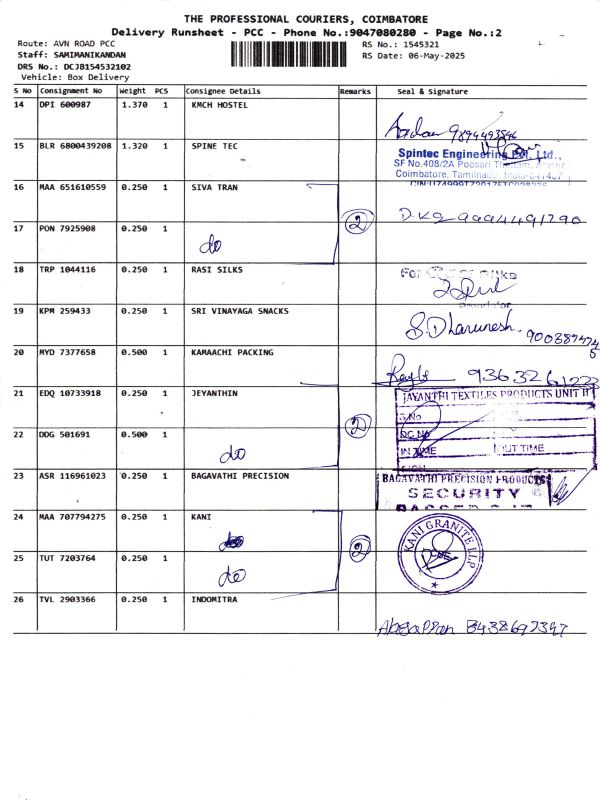 THE PROFESSIONAL COURIERS, COIMBATORE
Delivery Runsheet - PCC - Phone No.:9047080280 - Page No.:2
Route: AVN ROAD PCC
Staff: SAMIMANIKANDAN
DRS No.: DCJB154532102
Vehicle: Box Delivery
RS No.: 1545321
RS Date: 06-May-2025
S No Consignment No Weight PCS Consignee Details Remarks Seal & Signature
14 DPI 600987 1.370 1 KMCH HOSTEL
15 BLR 6800439208 1.320 1 SPINE TEC
Spintec Engineering Pvt. Ltd.,
SF No.408/2A Poosari
Coimbatore, Tamilnadu, India-641407
16 MAA 651610559 0.250 1 SIVA TRAN
2
17 PON 7925908 0.250 1
do
18 TRP 1044116 0.250 1 RASI SILKS
For Silks
19 KPM 259433 0.250 1 SRI VINAYAGA SNACKS
S. Dharunesh.
20 MYD 7377658 0.500 1 KAMAACHI PACKING
9363261223
21 EDQ 10733918 0.250 1 JEYANTHIN
JAYANTHI TEXTILES PRODUCTS UNIT II
S.No
DC No
IN TIME OUT TIME
SIGN
2
22 DDG 501691 0.500 1
do
23 ASR 116961023 0.250 1 BAGAVATHI PRECISION
BAGAVATHI PRECISION PRODUCTS
SECURITY
24 MAA 707794275 0.250 1 KANI
KANI GRANITE LLP
2
25 TUT 7203764 0.250 1
do
26 TVL 2903366 0.250 1 INDOMITRA
8438692397